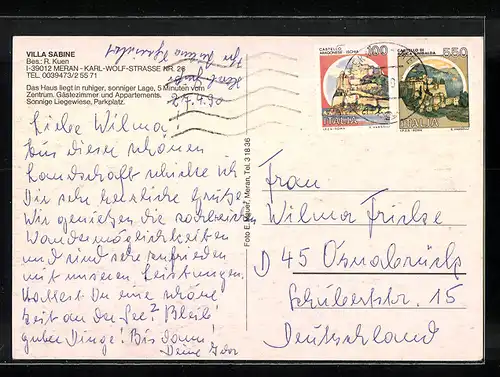 VILLA SABINE
Bes.: R. Kuen
I-39012 MERAN - KARL-WOLF-STRASSE NR. 26
TEL. 0039473/2 55 71
Das Haus liegt in ruhiger, sonniger Lage, 5 Minuten vom
Zentrum. Gästezimmer und Appartements.
Sonnige Liegewiese, Parkplatz.
27.4.90
Liebe Wilma!
Aus dieser schönen
Landschaft schicke ich
Dir sehr herzliche Grüße.
Wir genießen die zahlreichen
Wandermöglichkeiten
und sind sehr zufrieden
mit unseren Leistungen.
Hattest Du eine schöne
Zeit an der See? Bleib
guter Dinge! Bis dann!
Deine
Foto E. Bauer, Meran, Tel. 3 18 36
CASTELLO
ARAGONESE - ISCHIA
100
ITALIA
I.P.Z.S. - ROMA
CASTELLO DI
ROCCA SINIBALDA
550
ITALIA
I.P.Z.S. - ROMA
Frau
Wilma Fricke
D 45 Osnabrück
Schubertstr. 15
Deutschland